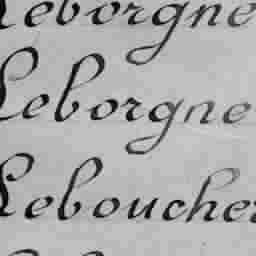 Leborgne
Leborgne
Leboucher